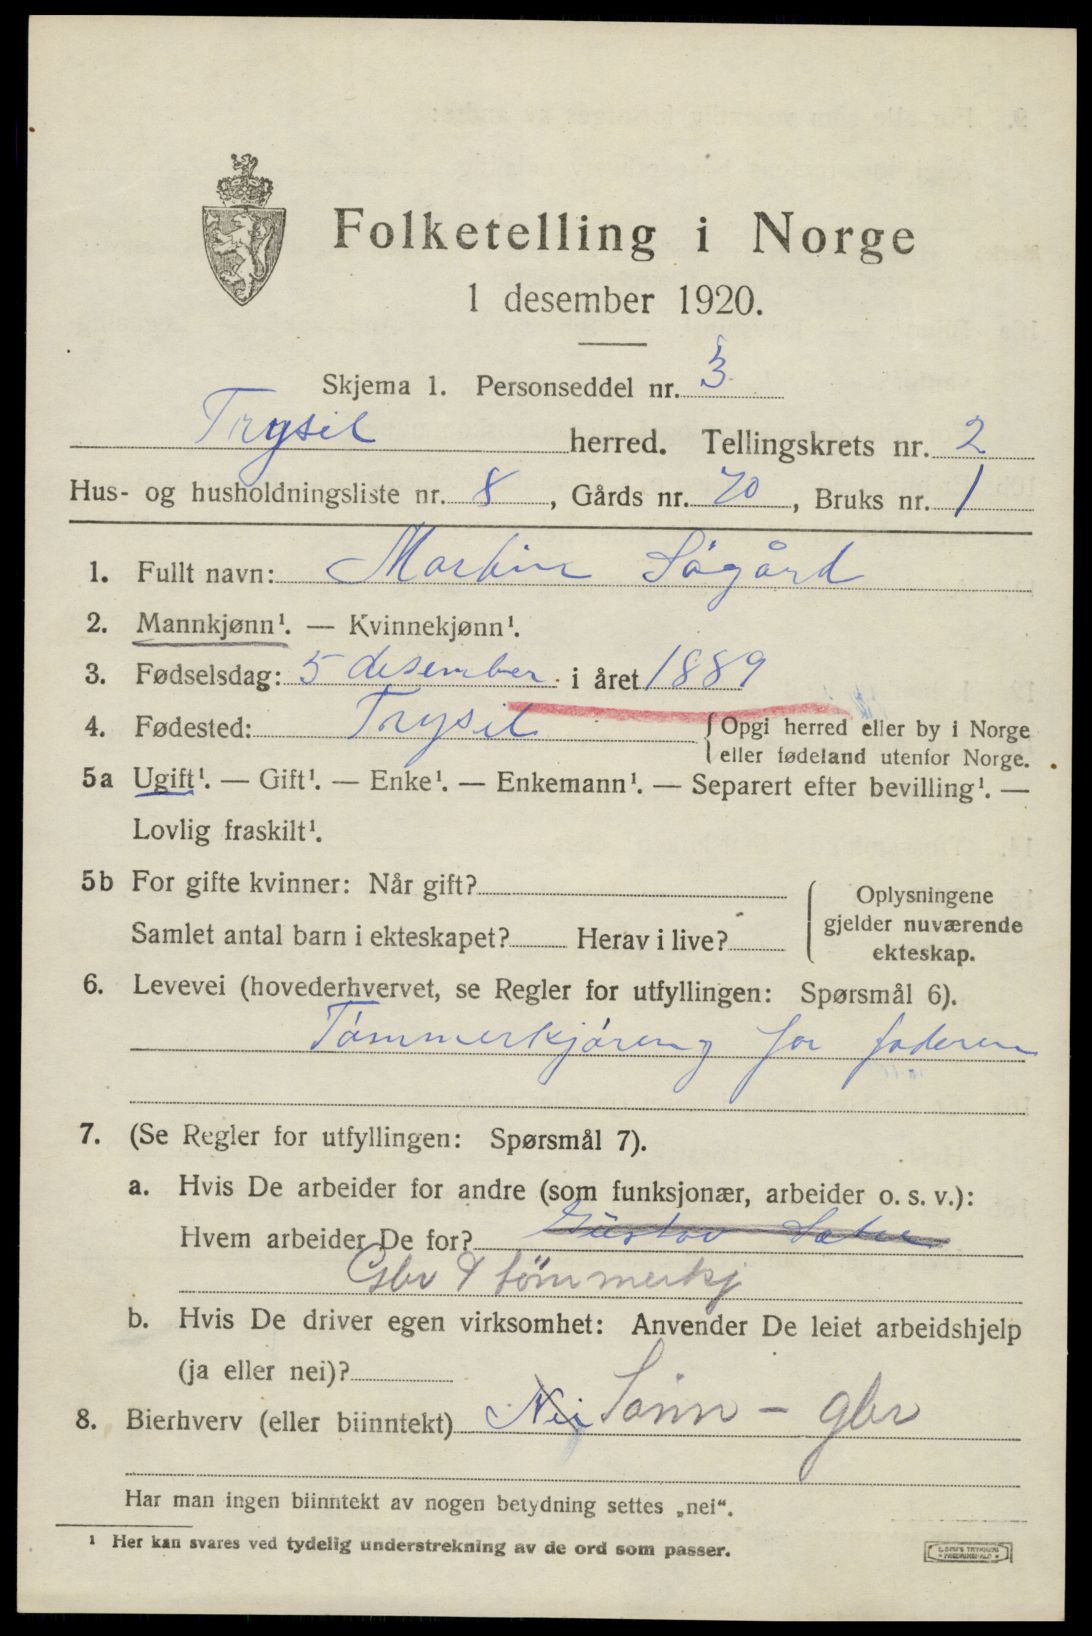 Folketelling i Norge
1 desember 1920.
Skjema 1. Personseddel nr. 3
Trysil herred. Tellingskrets nr. 2
Hus- og husholdningsliste nr. 8, Gårds nr. 70, Bruks nr. 1
1. Fullt navn: Martin Sögård
2. Mannkjønn¹. — Kvinnekjønn¹.
3. Fødselsdag: 5 desember i året 1889
4. Fødested: Trysil {Opgi herred eller by i Norge
eller fødeland utenfor Norge.
5a Ugift¹. — Gift¹. — Enke¹. — Enkemann¹. — Separert efter bevilling¹. —
Lovlig fraskilt¹.
5b For gifte kvinner: Når gift?
Samlet antal barn i ekteskapet? Herav i live?
{ Oplysningene
gjelder nuværende
ekteskap.
6. Levevei (hovederhvervet, se Regler for utfyllingen: Spørsmål 6).
Tømmerkjøreng for faderen
7. (Se Regler for utfyllingen: Spørsmål 7).
a. Hvis De arbeider for andre (som funksjonær, arbeider o. s. v.):
Hvem arbeider De for? Gustav
Gbr & tømmerkj
b. Hvis De driver egen virksomhet: Anvender De leiet arbeidshjelp
(ja eller nei)?
8. Bierhverv (eller biinntekt) Nei Sønn — gbr
Har man ingen biinntekt av nogen betydning settes „nei“.
¹ Her kan svares ved tydelig understrekning av de ord som passer.